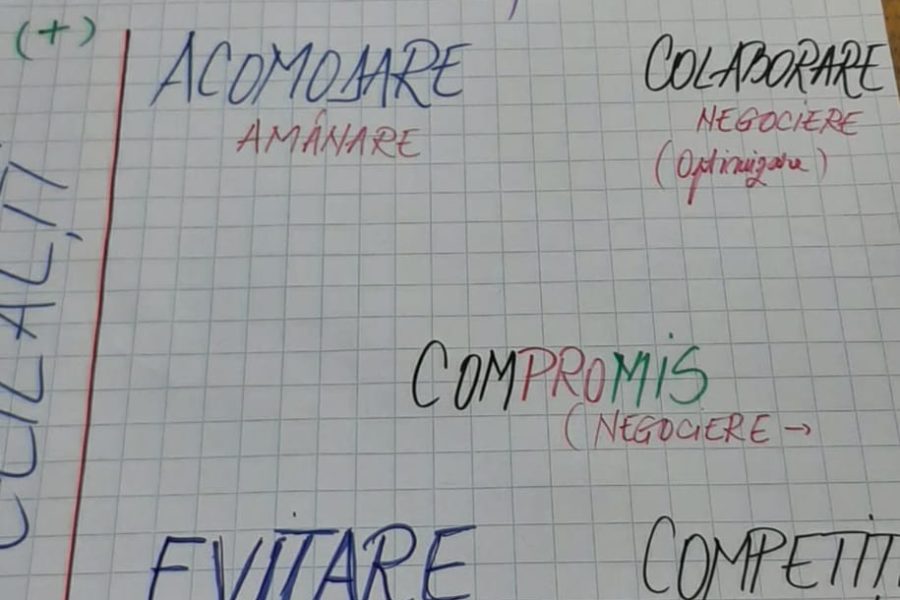 (+)
ACOMODARE
AMÂNARE
COLABORARE
NEGOCIERE
(Optimizare)
CEILALȚI
COMPROMIS
(NEGOCIERE →
EVITARE
COMPETIȚ